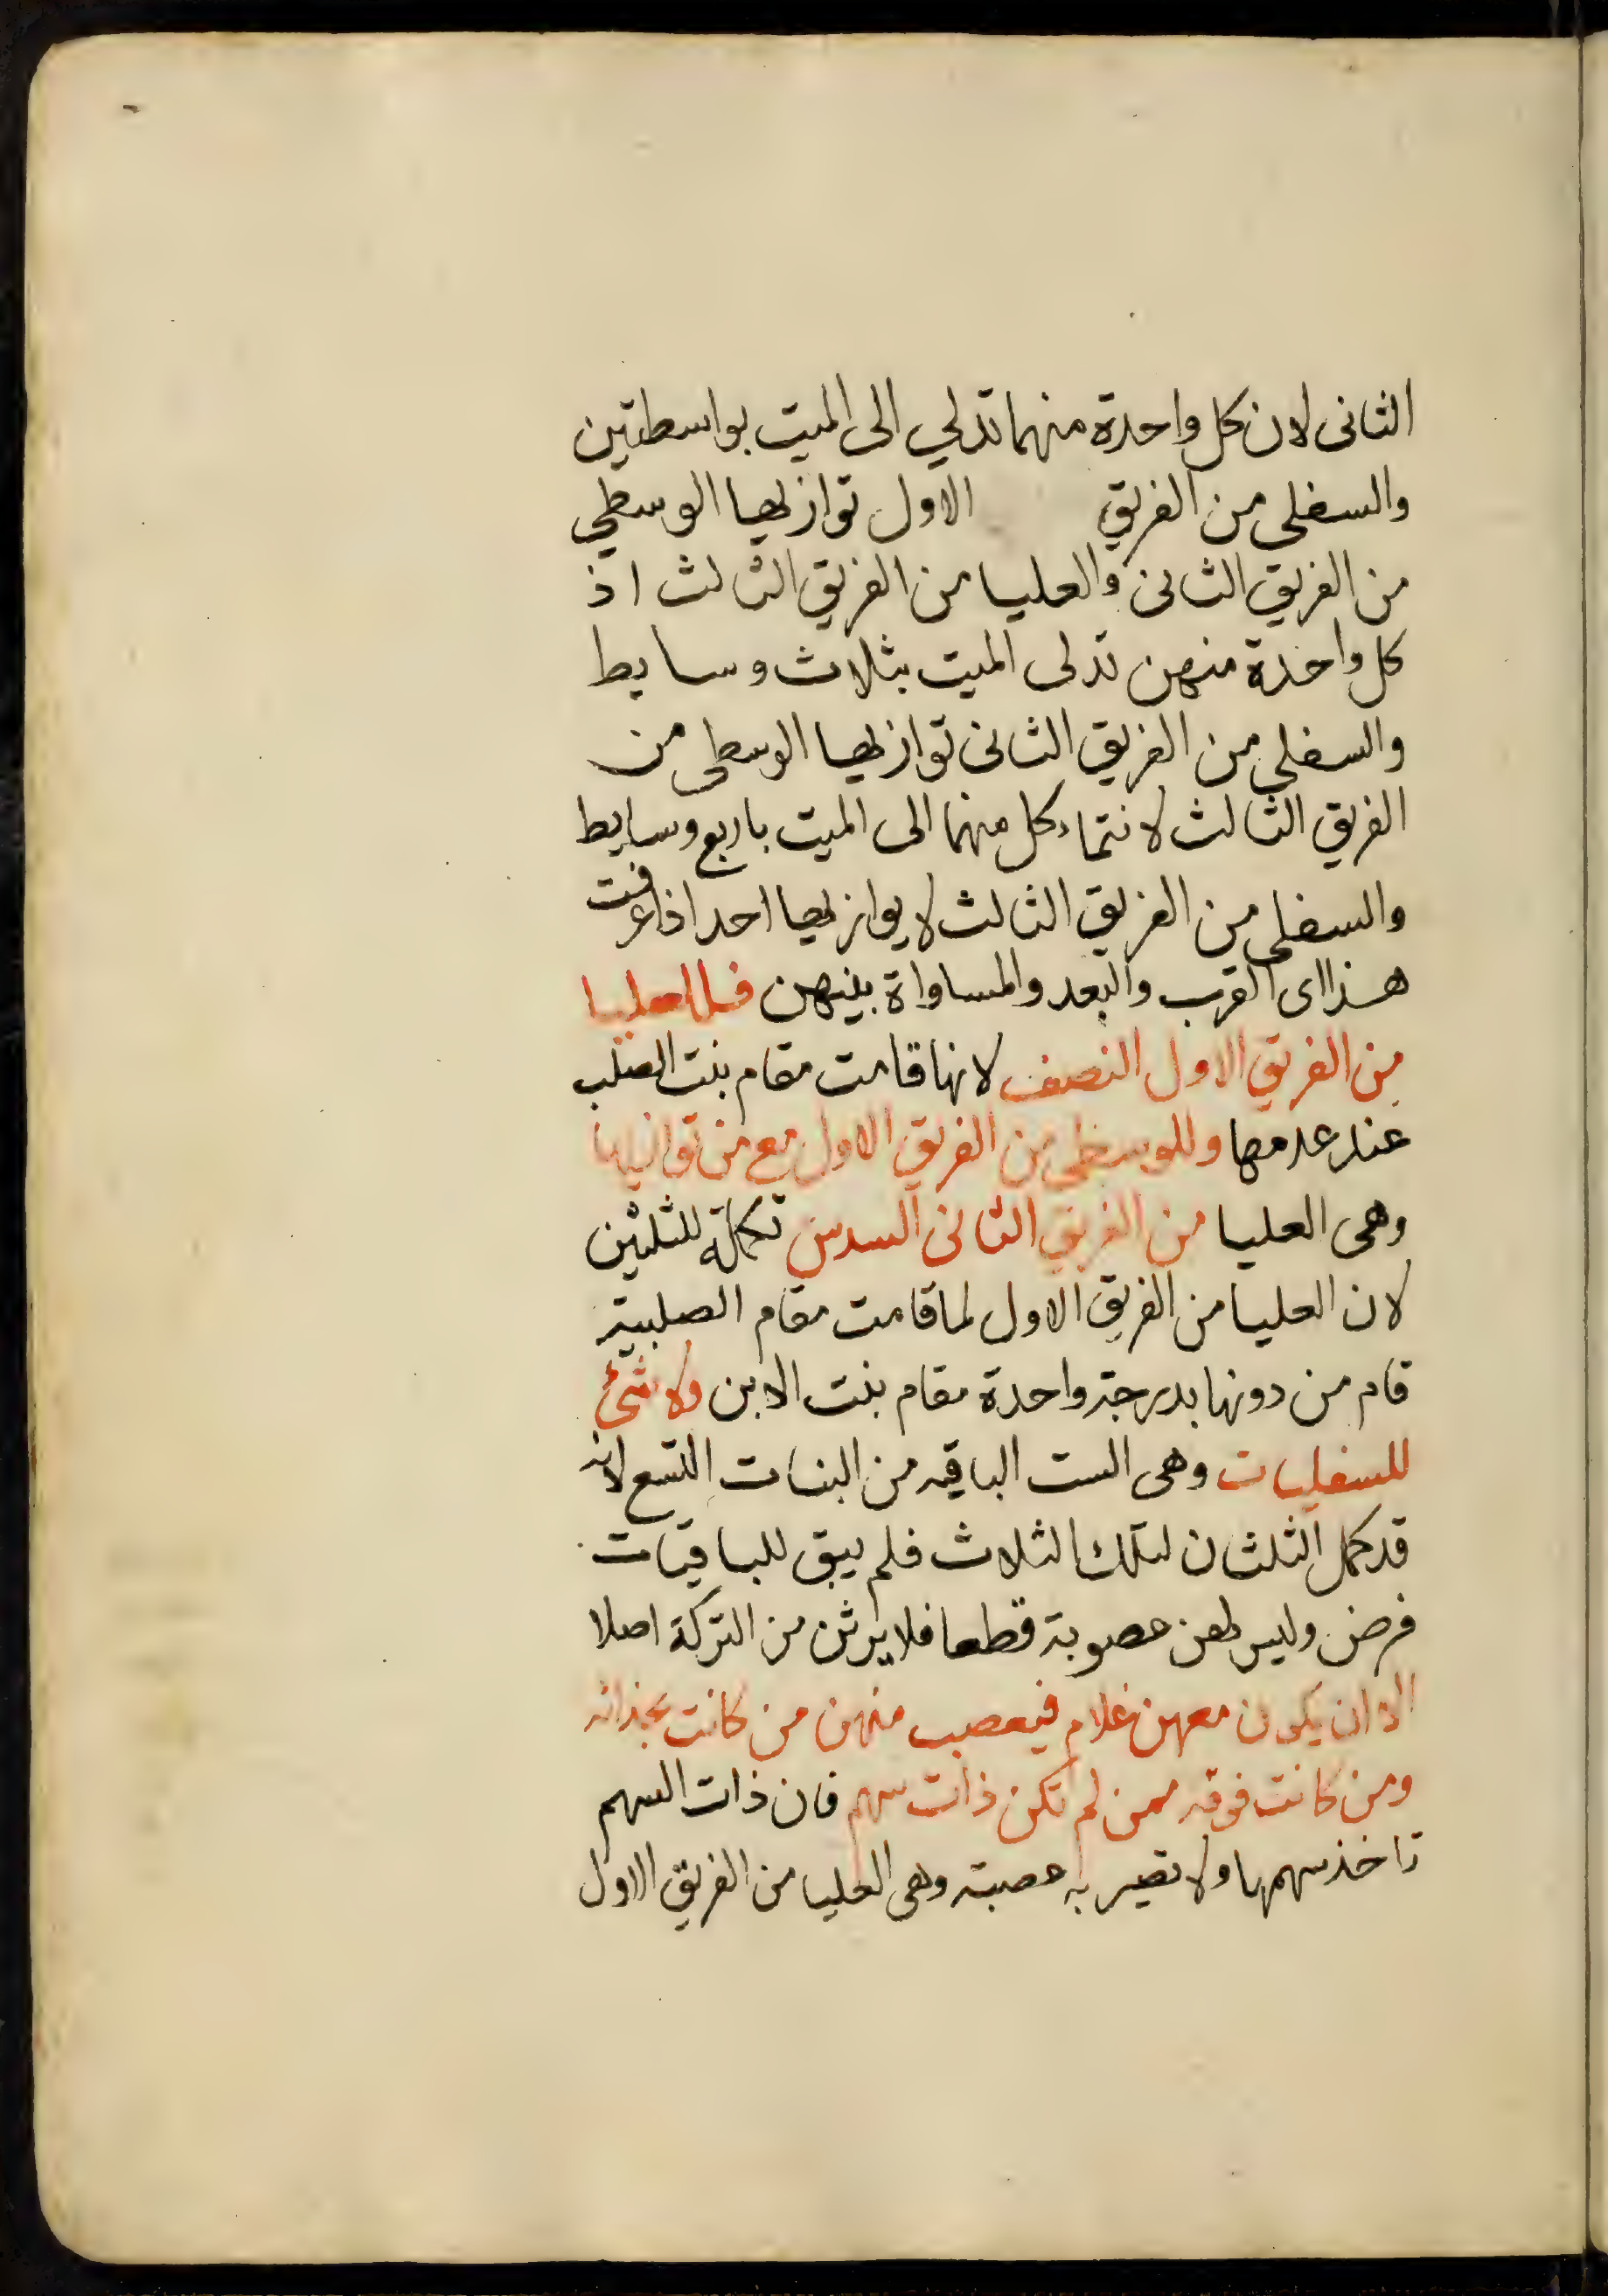 الثانى لان كل واحدة منهما تدلي الى الميت بواسطتين
والسفلى من الفريق الاول توازيها الوسطي
من الفريق الثانى والعليا من الفريق الثالث اذ
كل واحدة منهن تدلى الميت بثلاث وسايط
والسفلي من الفريق الثانى توازيها الوسطى من
الفريق الثالث لانتماء كل منهما الى الميت باربع وسايط
والسفلى من الفريق الثالث لا يوازيها احد اذا عرفت
هذا اى القرب والبعد والمساواة بينهن فللعليا
من الفريق الاول النصف لانها قامت مقام بنت الصلب
عند عدمها وللوسطى من الفريق الاول مع من توازيها
وهى العليا من الفريق الثانى السدس تكملة للثلثين
لان العليا من الفريق الاول لما قامت مقام الصلبية
قام من دونها بدرجة واحدة مقام بنت الابن ولا شئ
للسفليات وهى الست الباقيه من البنات التسع لانه
قد كمل الثلثان لتلك الثلاث فلم يبق للباقيات
فرض وليس لهن عصوبة قطعا فلا يرثن من التركة اصلا
الا ان يكون معهن غلام فيعصب منهن من كانت بحذائه
ومن كانت فوقه ممن لم تكن ذات سهم فان ذات السهم
تاخذ سهمها ولا تصير به عصبة وهى العليا من الفريق الاول